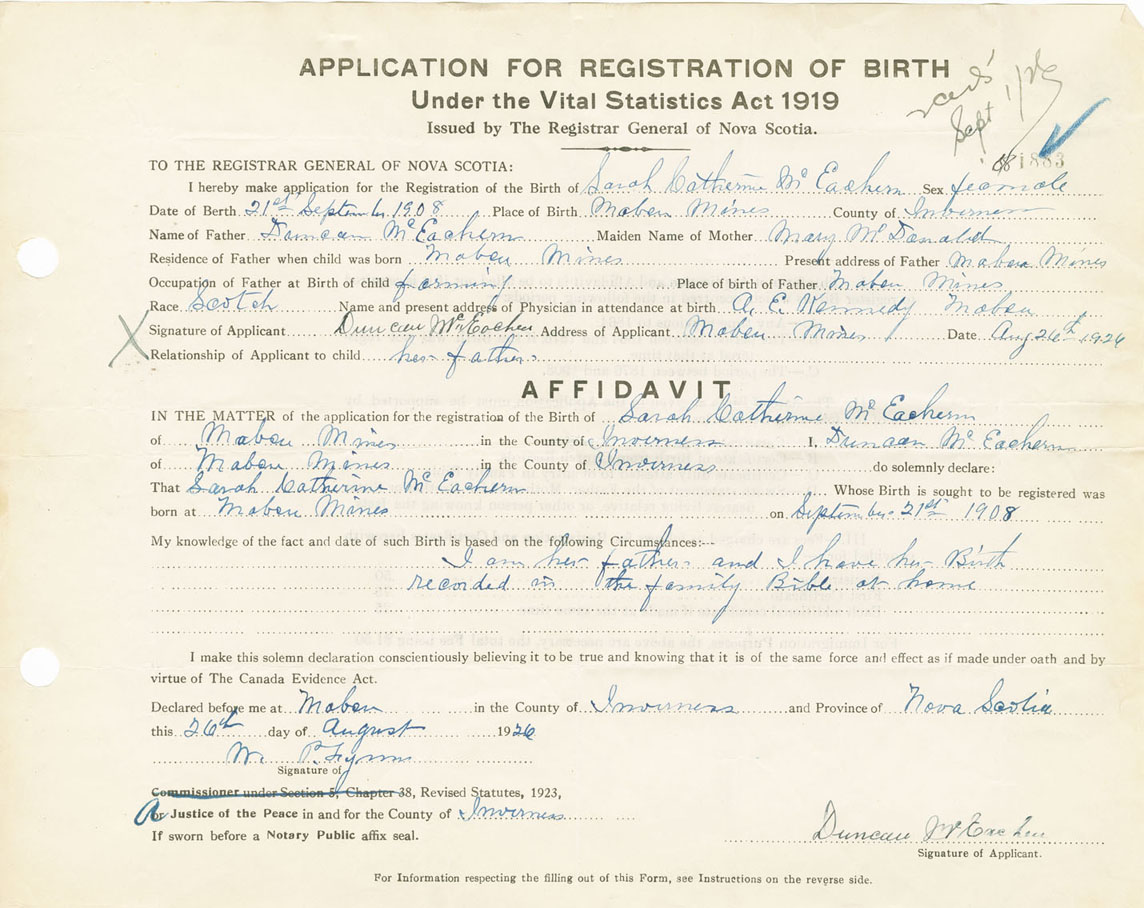 APPLICATION FOR REGISTRATION OF BIRTH
Under the Vital Statistics Act 1919
Issued by The Registrar General of Nova Scotia.
Sept 1/26
1883
TO THE REGISTRAR GENERAL OF NOVA SCOTIA:
I hereby make application for the Registration of the Birth of Sarah Catherine Mc Eachern Sex female
Date of Berth 21st September 1908 Place of Birth Mabou Mines County of Inverness
Name of Father Duncan Mc Eachern Maiden Name of Mother Mary McDonald
Residence of Father when child was born Mabou Mines Present address of Father Mabou Mines
Occupation of Father at Birth of child farming Place of birth of Father Mabou Mines
Race Scotch Name and present address of Physician in attendance at birth A. E. Kennedy Mabou
X Signature of Applicant Duncan McEachen Address of Applicant Mabou Mines Date Aug 26th 1926
Relationship of Applicant to child her father
AFFIDAVIT
IN THE MATTER of the application for the registration of the Birth of Sarah Catherine Mc Eachern
of Mabou Mines in the County of Inverness I, Duncan Mc Eachern
of Mabou Mines in the County of Inverness do solemnly declare:
That Sarah Catherine Mc Eachern Whose Birth is sought to be registered was
born at Mabou Mines on September 21st 1908
My knowledge of the fact and date of such Birth is based on the following Circumstances:--
I am her father and I have her Birth
recorded in the family Bible at home
I make this solemn declaration conscientiously believing it to be true and knowing that it is of the same force and effect as if made under oath and by
virtue of The Canada Evidence Act.
Declared before me at Mabou in the County of Inverness and Province of Nova Scotia
this 26th day of August 1926
W. P. Flynn
Signature of
Commissioner under Section 5, Chapter 38, Revised Statutes, 1923,
or Justice of the Peace in and for the County of Inverness
If sworn before a Notary Public affix seal.
Duncan McEachen
Signature of Applicant.
For Information respecting the filling out of this Form, see Instructions on the reverse side.